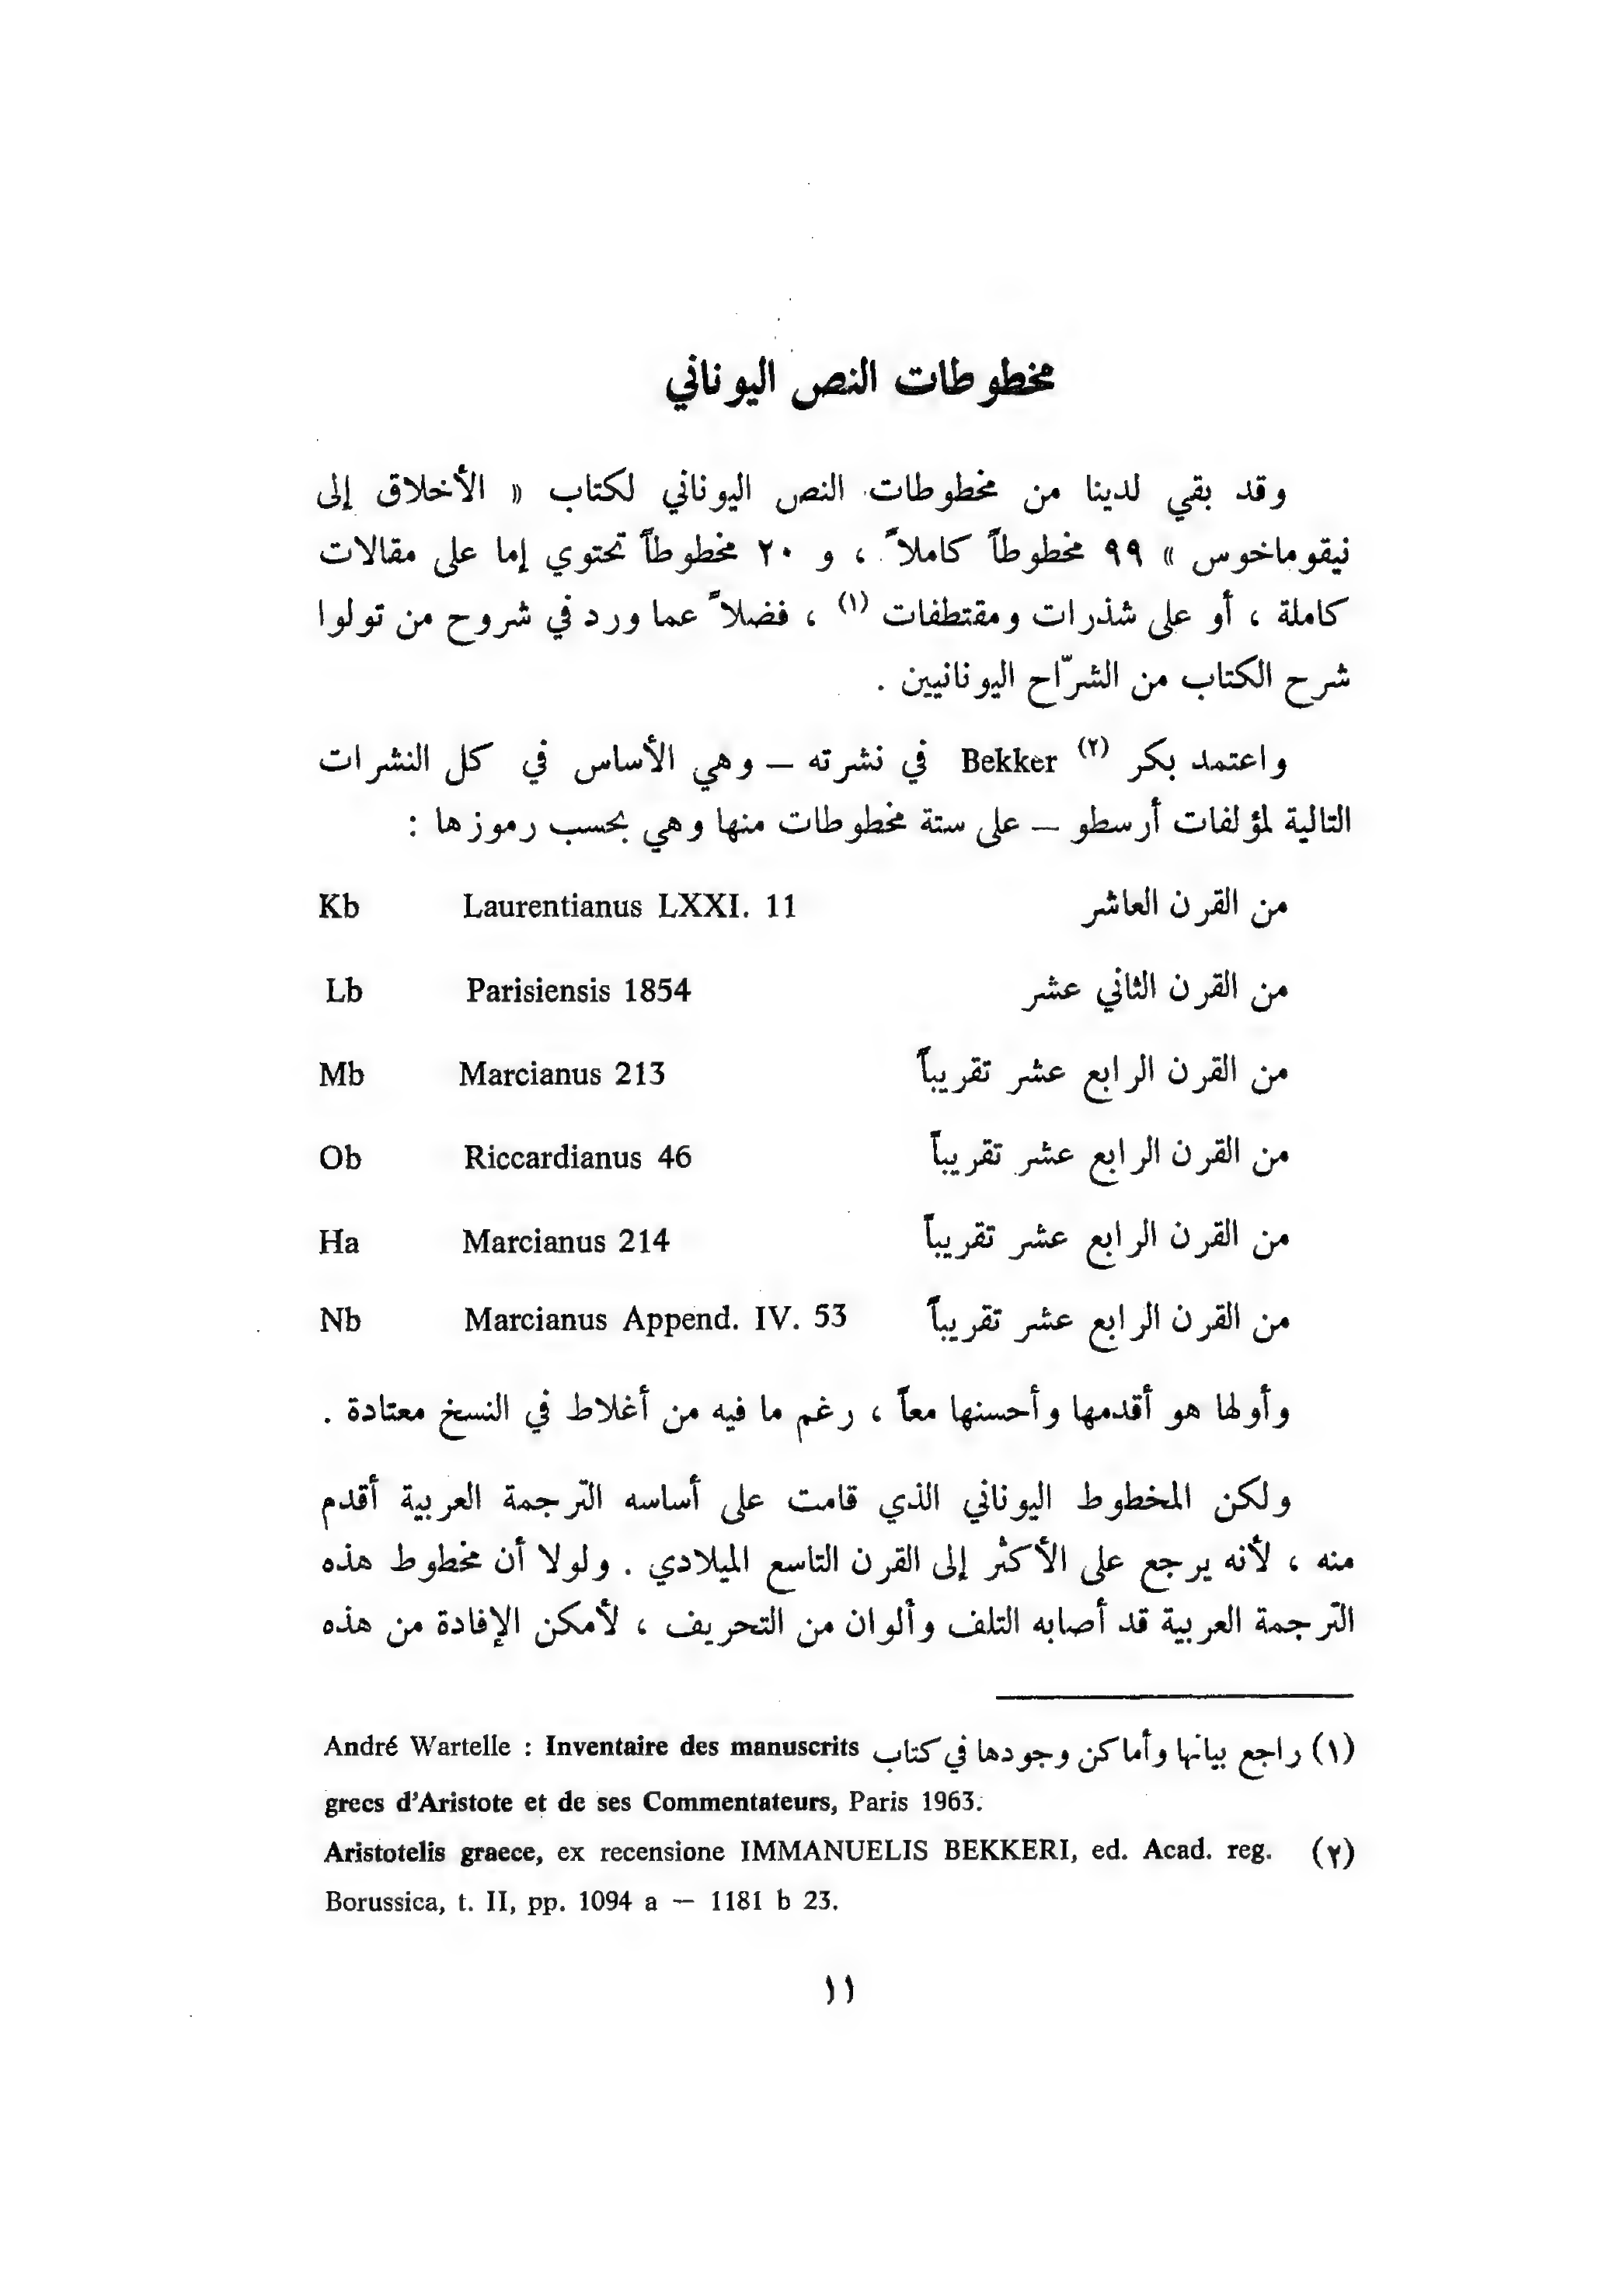 مخطوطات النص اليوناني
وقد بقي لدينا من مخطوطات النص اليوناني لكتاب « الأخلاق إلى
نيقوماخوس » ٩٩ مخطوطاً كاملاً ، و ٢٠ مخطوطاً تحتوي إما على مقالات
كاملة ، أو على شذرات ومقتطفات (١) ، فضلاً عما ورد في شروح من تولوا
شرح الكتاب من الشرّاح اليونانيين .
واعتمد بكر (٢) Bekker في نشرته – وهي الأساس في كل النشرات
التالية لمؤلفات أرسطو – على ستة مخطوطات منها وهي بحسب رموزها :
Kb Laurentianus LXXI. 11 من القرن العاشر
Lb Parisiensis 1854 من القرن الثاني عشر
Mb Marcianus 213 من القرن الرابع عشر تقريباً
Ob Riccardianus 46 من القرن الرابع عشر تقريباً
Ha Marcianus 214 من القرن الرابع عشر تقريباً
Nb Marcianus Append. IV. 53 من القرن الرابع عشر تقريباً
وأولها هو أقدمها وأحسنها معاً ، رغم ما فيه من أغلاط في النسخ معتادة .
ولكن المخطوط اليوناني الذي قامت على أساسه الترجمة العربية أقدم
منه ، لأنه يرجع على الأكثر إلى القرن التاسع الميلادي . ولولا أن مخطوط هذه
الترجمة العربية قد أصابه التلف وألوان من التحريف ، لأمكن الإفادة من هذه
(١) راجع بيانها وأماكن وجودها في كتاب André Wartelle : Inventaire des manuscrits
grecs d'Aristote et de ses Commentateurs, Paris 1963.
(٢) Aristotelis graece, ex recensione IMMANUELIS BEKKERI, ed. Acad. reg.
Borussica, t. II, pp. 1094 a — 1181 b 23.
١١